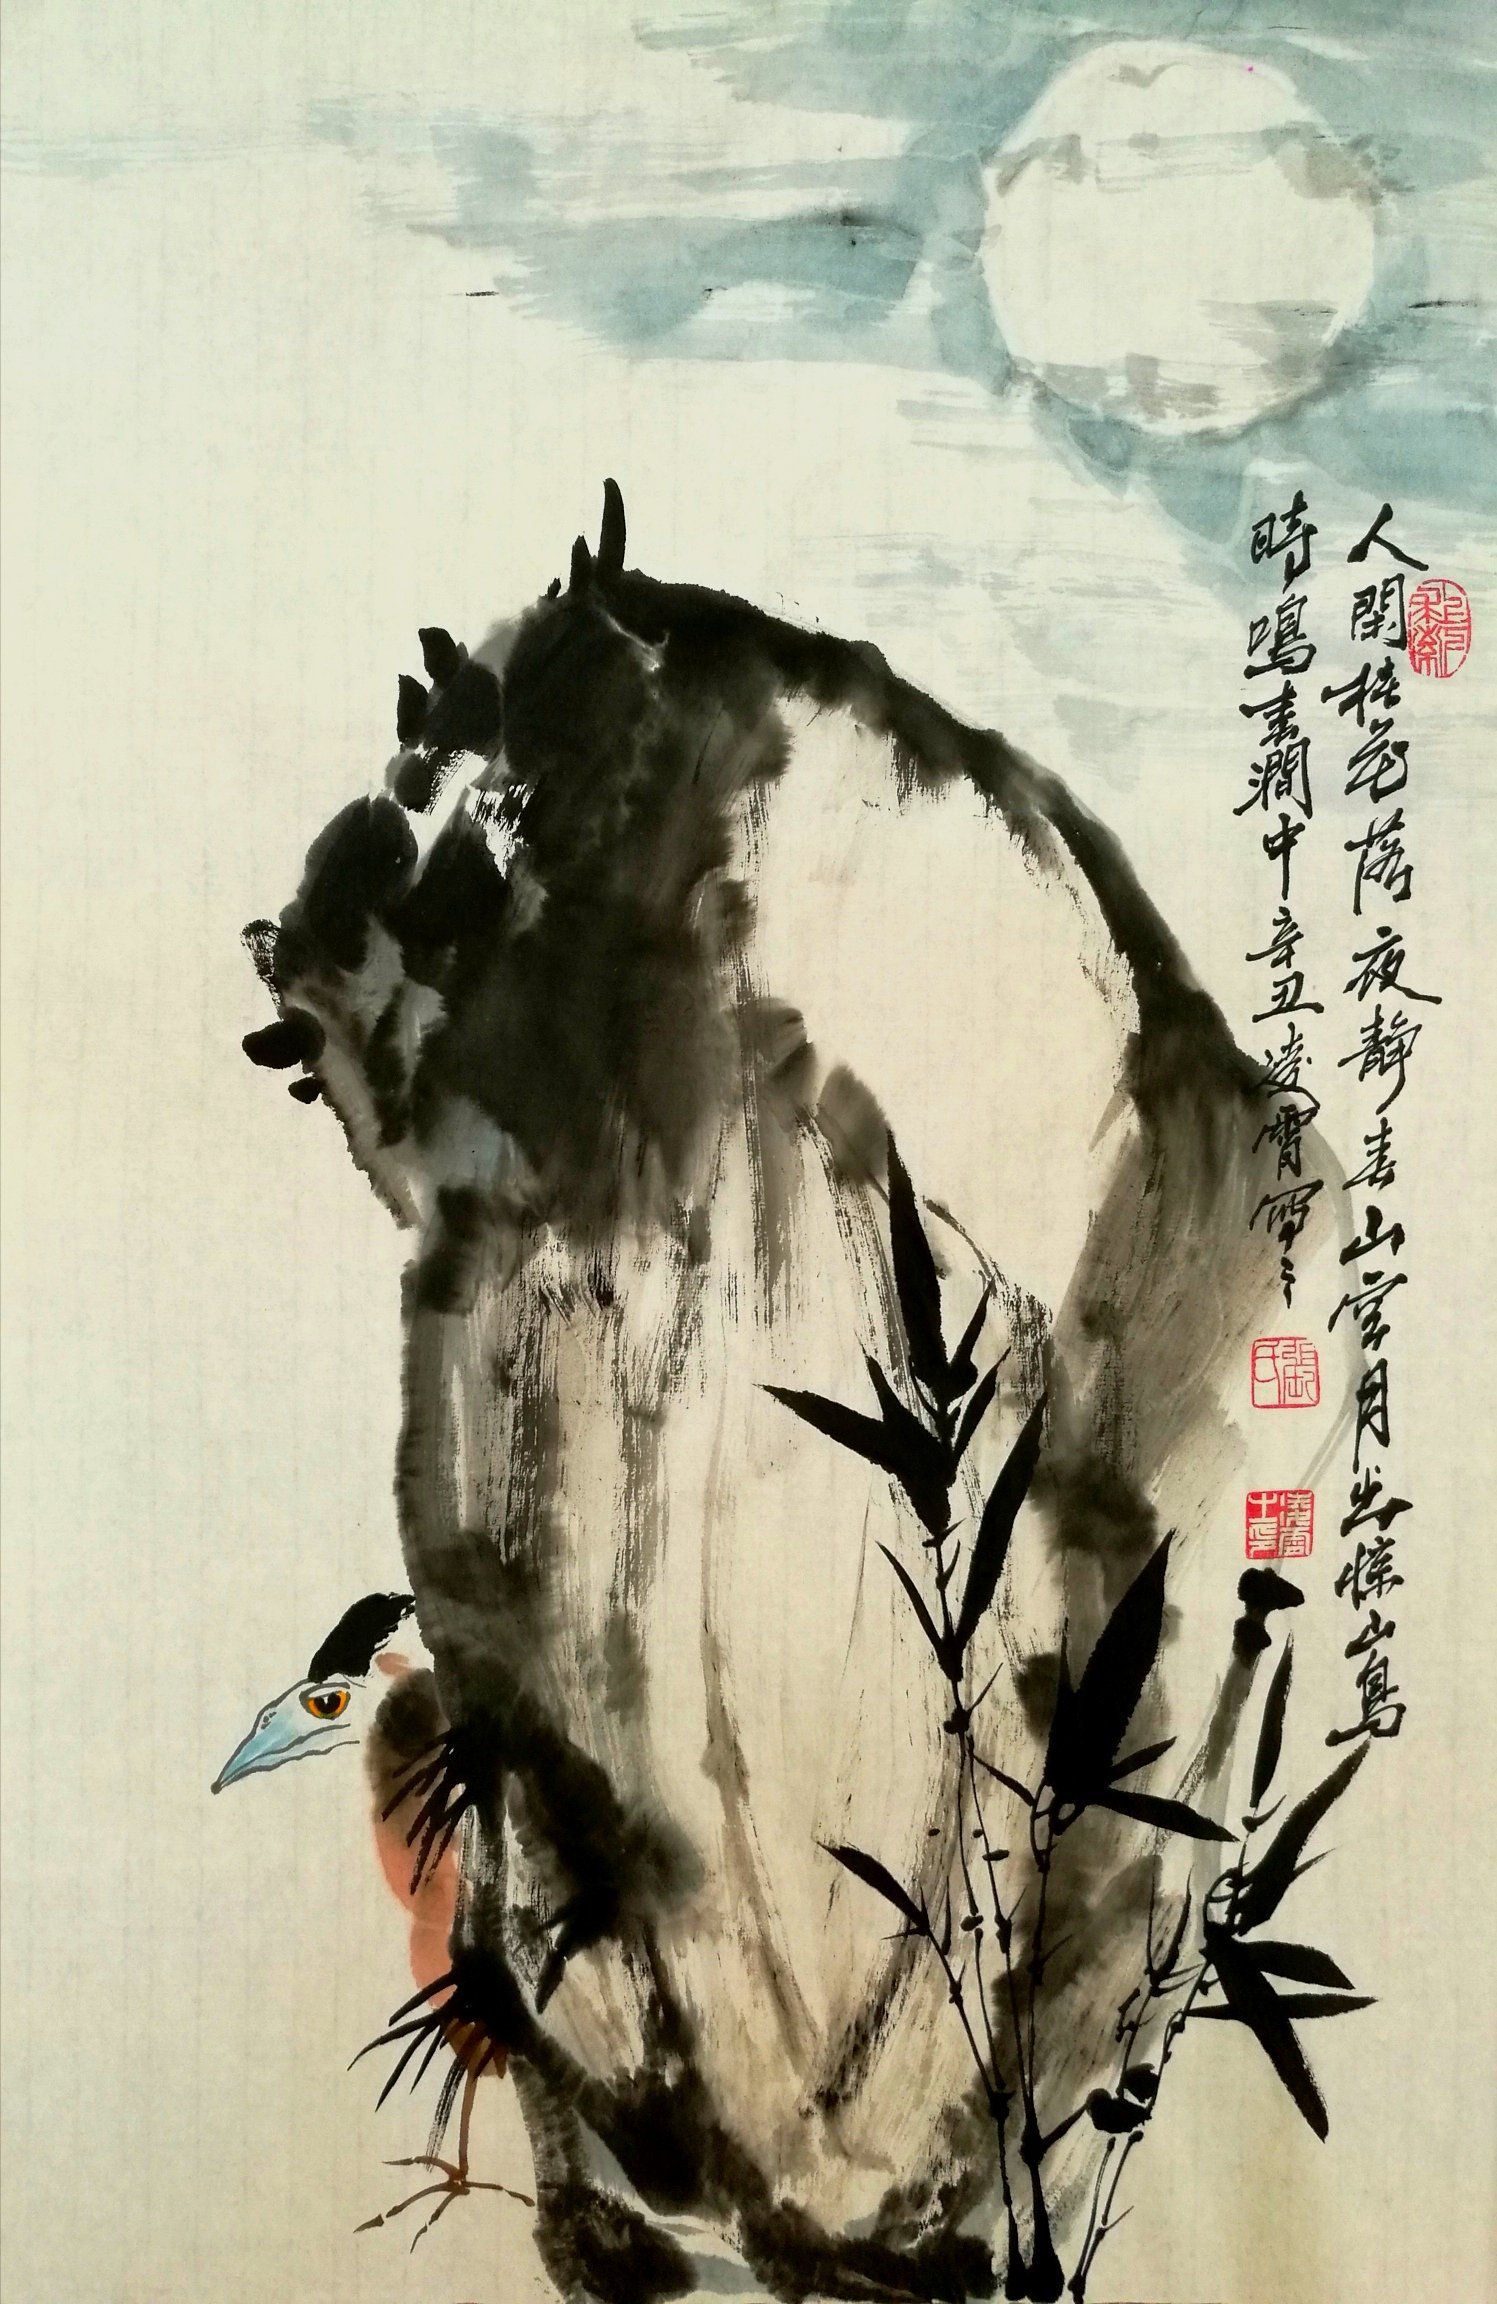 人閑桂花落夜靜春山空月出惊山鳥
時鳴春澗中辛丑凌霄写
張氏